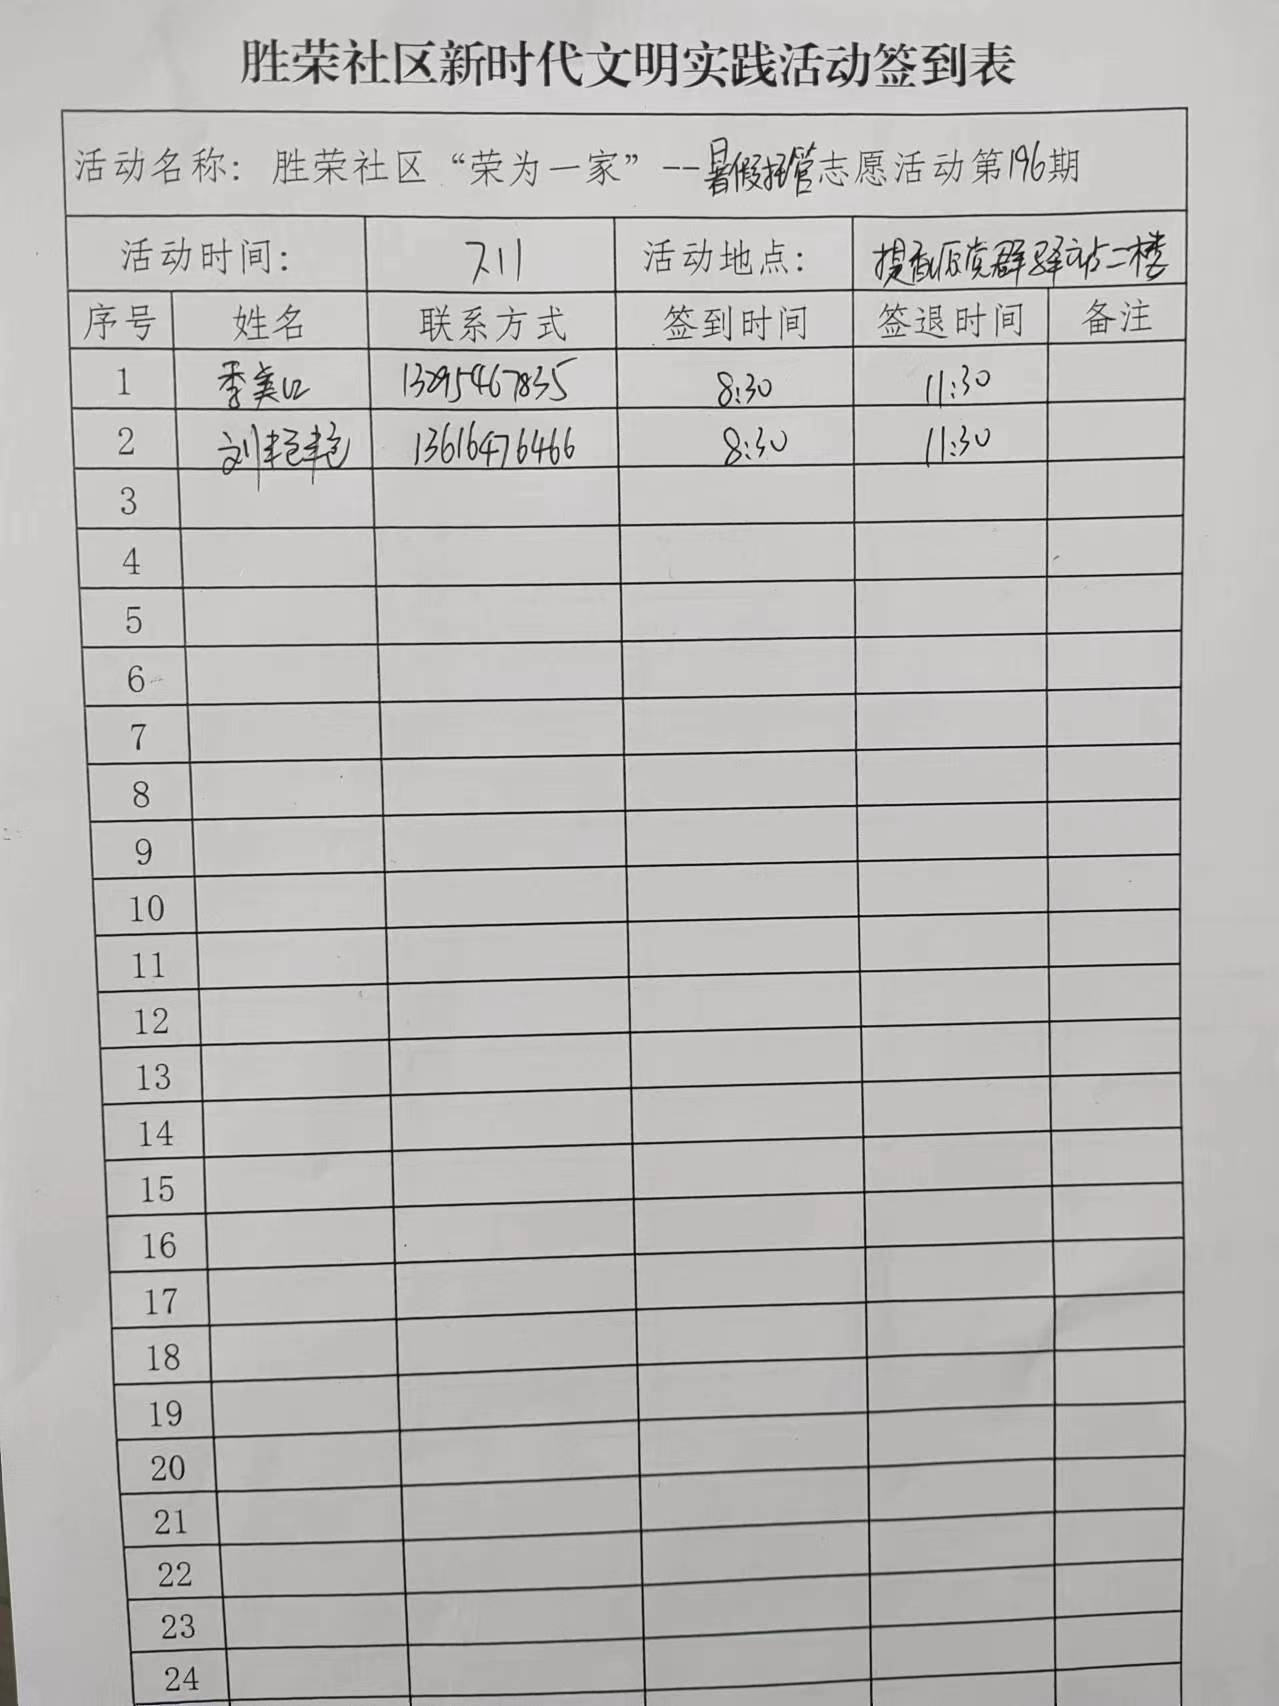 胜荣社区新时代文明实践活动签到表
活动名称：胜荣社区“荣为一家”--暑假托管志愿活动第196期
活动时间： 7.11 活动地点： 党群驿站二楼
序号 姓名 联系方式 签到时间 签退时间 备注
1 季美 13295467835 8:30 11:30
2 刘艳艳 13616476466 8:30 11:30
3
4
5
6
7
8
9
10
11
12
13
14
15
16
17
18
19
20
21
22
23
24